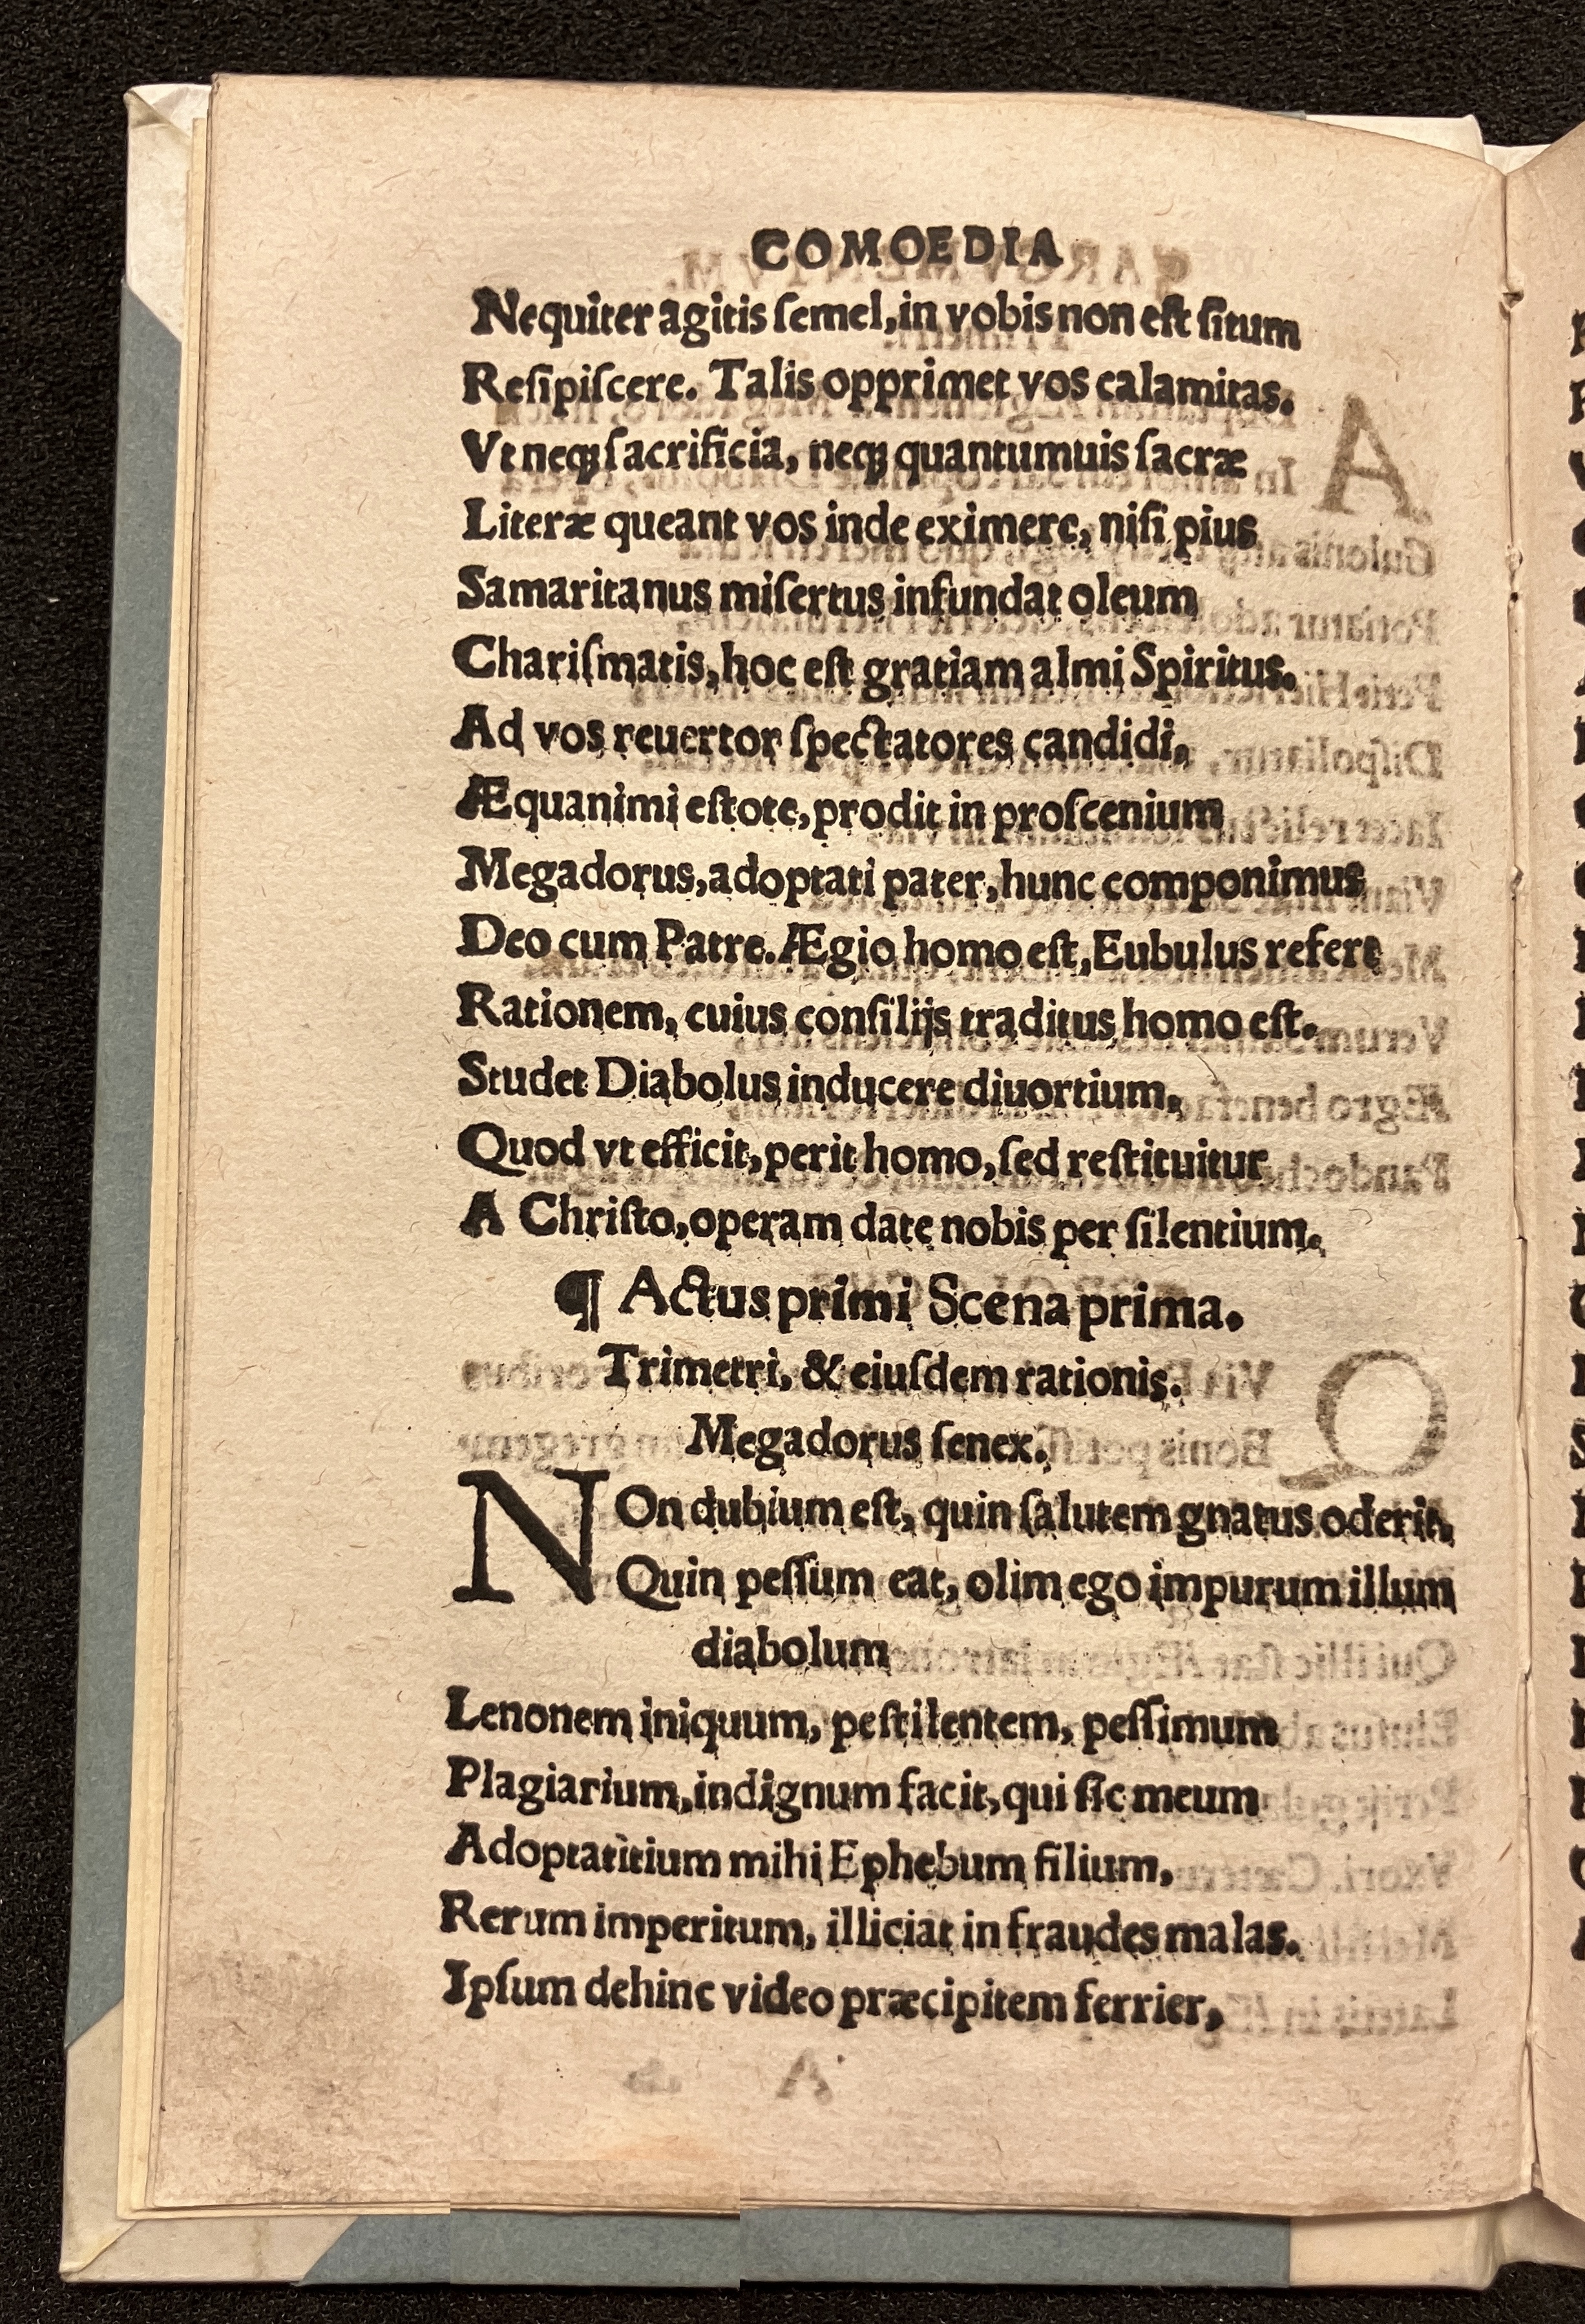 COMOEDIA
Nequiter agitis ſemel, in vobis non eſt ſitum
Reſipiſcere. Talis opprimet vos calamitas.
Vt neqꝫ ſacrificia, neqꝫ quantumuis ſacræ
Literæ queant vos inde eximere, niſi pius
Samaritanus miſertus infundat oleum
Chariſmatis, hoc eſt gratiam almi Spiritus.
Ad vos reuertor ſpectatores candidi,
Æquanimi eſtote, prodit in proſcenium
Megadorus, adoptati pater, hunc componimus
Deo cum Patre. Ægio homo eſt, Eubulus refert
Rationem, cuius conſilijs traditus homo eſt.
Studet Diabolus inducere diuortium,
Quod vt efficit, perit homo, ſed reſtituitur
A Chriſto, operam date nobis per ſilentium.
¶ Actus primi Scena prima.
Trimetri, & eiuſdem rationis.
Megadorus ſenex.
NOn dubium eſt, quin ſalutem gnatus oderit,
Quin peſſum eat, olim ego impurum illum
diabolum
Lenonem iniquum, peſtilentem, peſſimum
Plagiarium, indignum facit, qui ſic meum
Adoptatitium mihi Ephebum filium,
Rerum imperitum, illiciat in fraudes malas.
Ipſum dehinc video præcipitem ferrier,